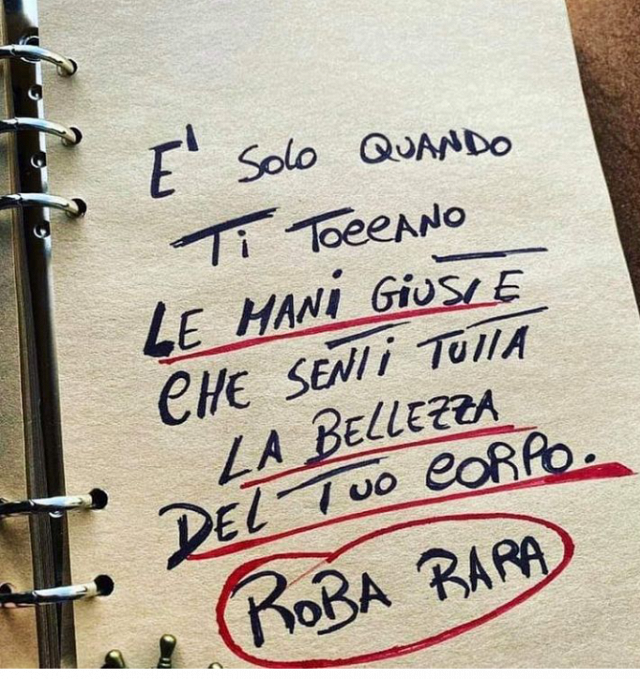 E' SOLO QUANDO
Ti TOCCANO
LE MANi GiUSTE
CHE SENTi TUTTA
LA BELLEZZA
DEL TUO CORPO.
ROBA RARA